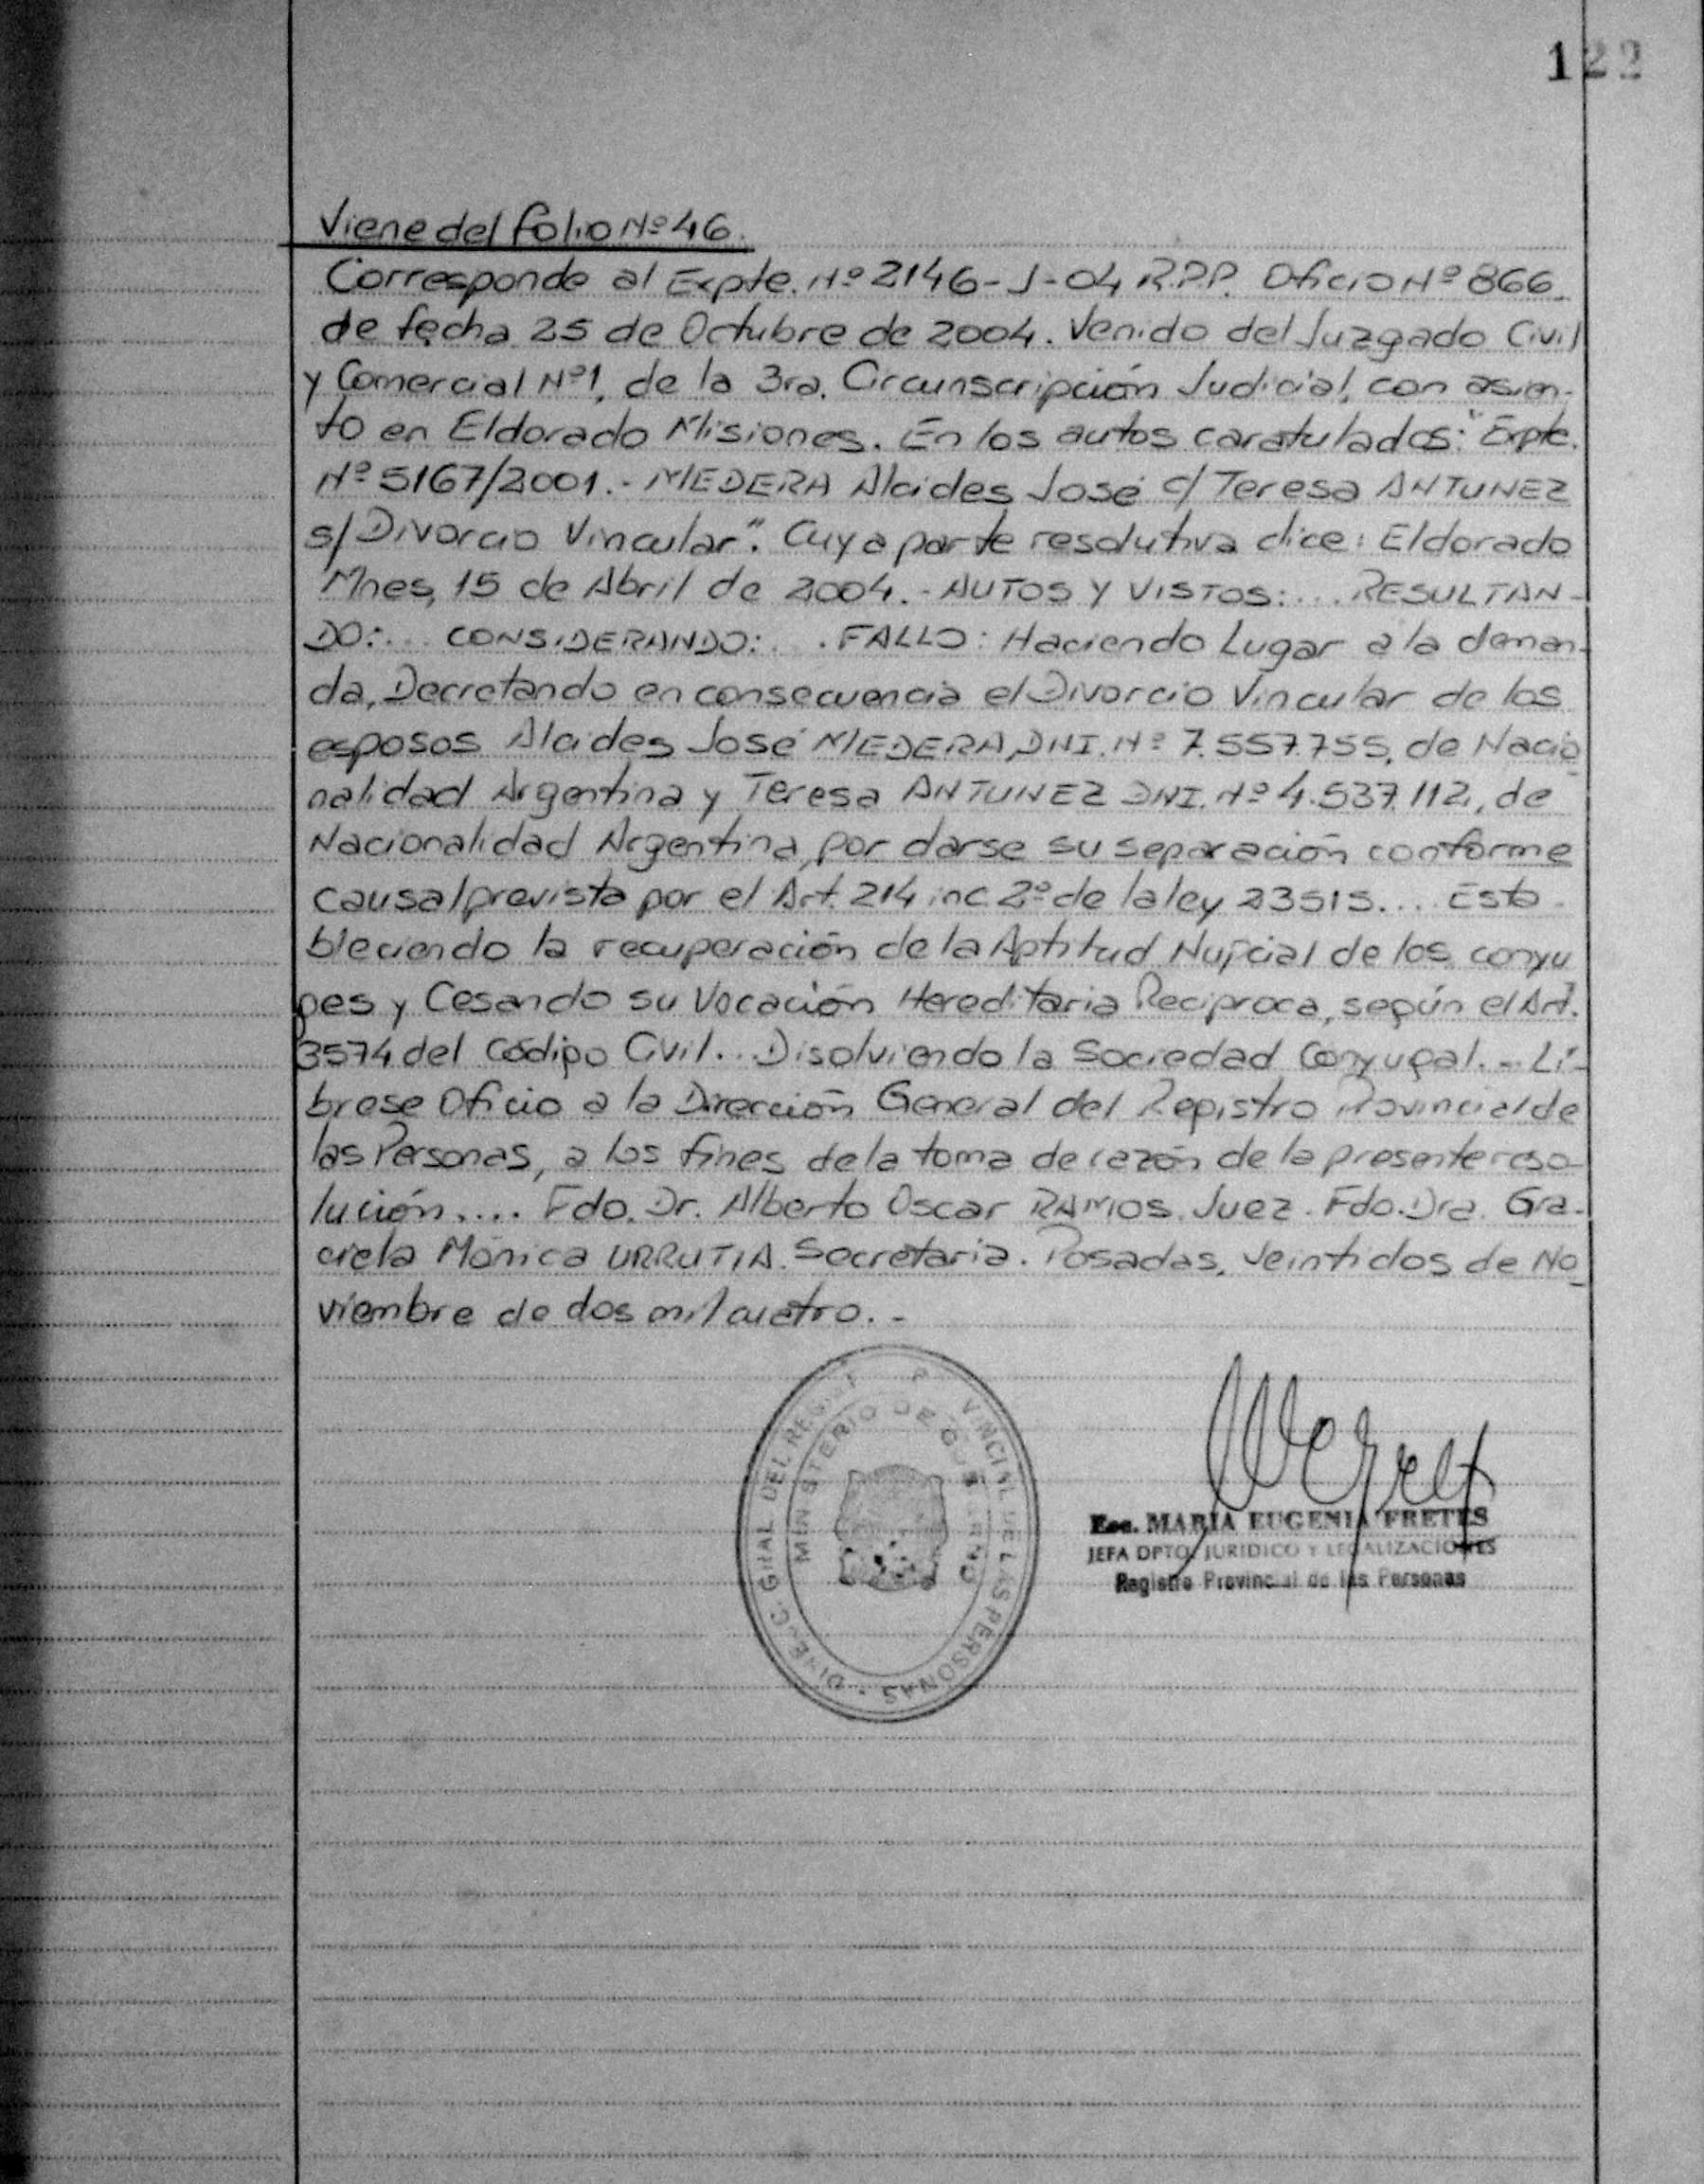 122
Viene del folio Nº 46.
Corresponde al Expte. Nº 2146-J-04 R.P.P. Oficio Nº 866
de fecha 25 de Octubre de 2004. Venido del Juzgado Civil
y Comercial Nº1, de la 3ra. Circunscripción Judicial, con asien-
to en Eldorado Misiones. En los autos caratulados: "Expte.
Nº 5167/2001.- MEDERA Alcides José c/ Teresa ANTUNEZ
s/ Divorcio Vincular". Cuya parte resolutiva dice: Eldorado
Mnes, 15 de Abril de 2004.- AUTOS Y VISTOS:... RESULTAN-
DO:... CONSIDERANDO:... FALLO: Haciendo Lugar a la deman-
da, Decretando en consecuencia el Divorcio Vincular de los
esposos Alcides José MEDERA, DNI. Nº 7.557.755, de Nacio
nalidad Argentina y Teresa ANTUNEZ DNI. Nº 4.537.112, de
Nacionalidad Argentina, por darse su separación conforme
causal prevista por el Art. 214 inc. 2º de la ley 23515.... Esta
bleciendo la recuperación de la Aptitud Nupcial de los conyu
ges y Cesando su Vocación Hereditaria Reciproca, según el Art.
3574 del Código Civil... Disolviendo la Sociedad Conyugal.- Lí-
brese Oficio a la Dirección General del Registro Provincial de
las Personas, a los fines de la toma de razón de la presente reso-
lución.... Fdo. Dr. Alberto Oscar RAMOS. Juez. Fdo. Dra. Gra-
ciela Mónica URRUTIA. Secretaria. Posadas, Veintidos de No
viembre de dos mil cuatro.-
MINISTERIO DE GOBIERNO
Esc. MARIA EUGENIA FRETES
JEFA DPTO. JURIDICO Y LEGALIZACIONES
Registro Provincial de las Personas